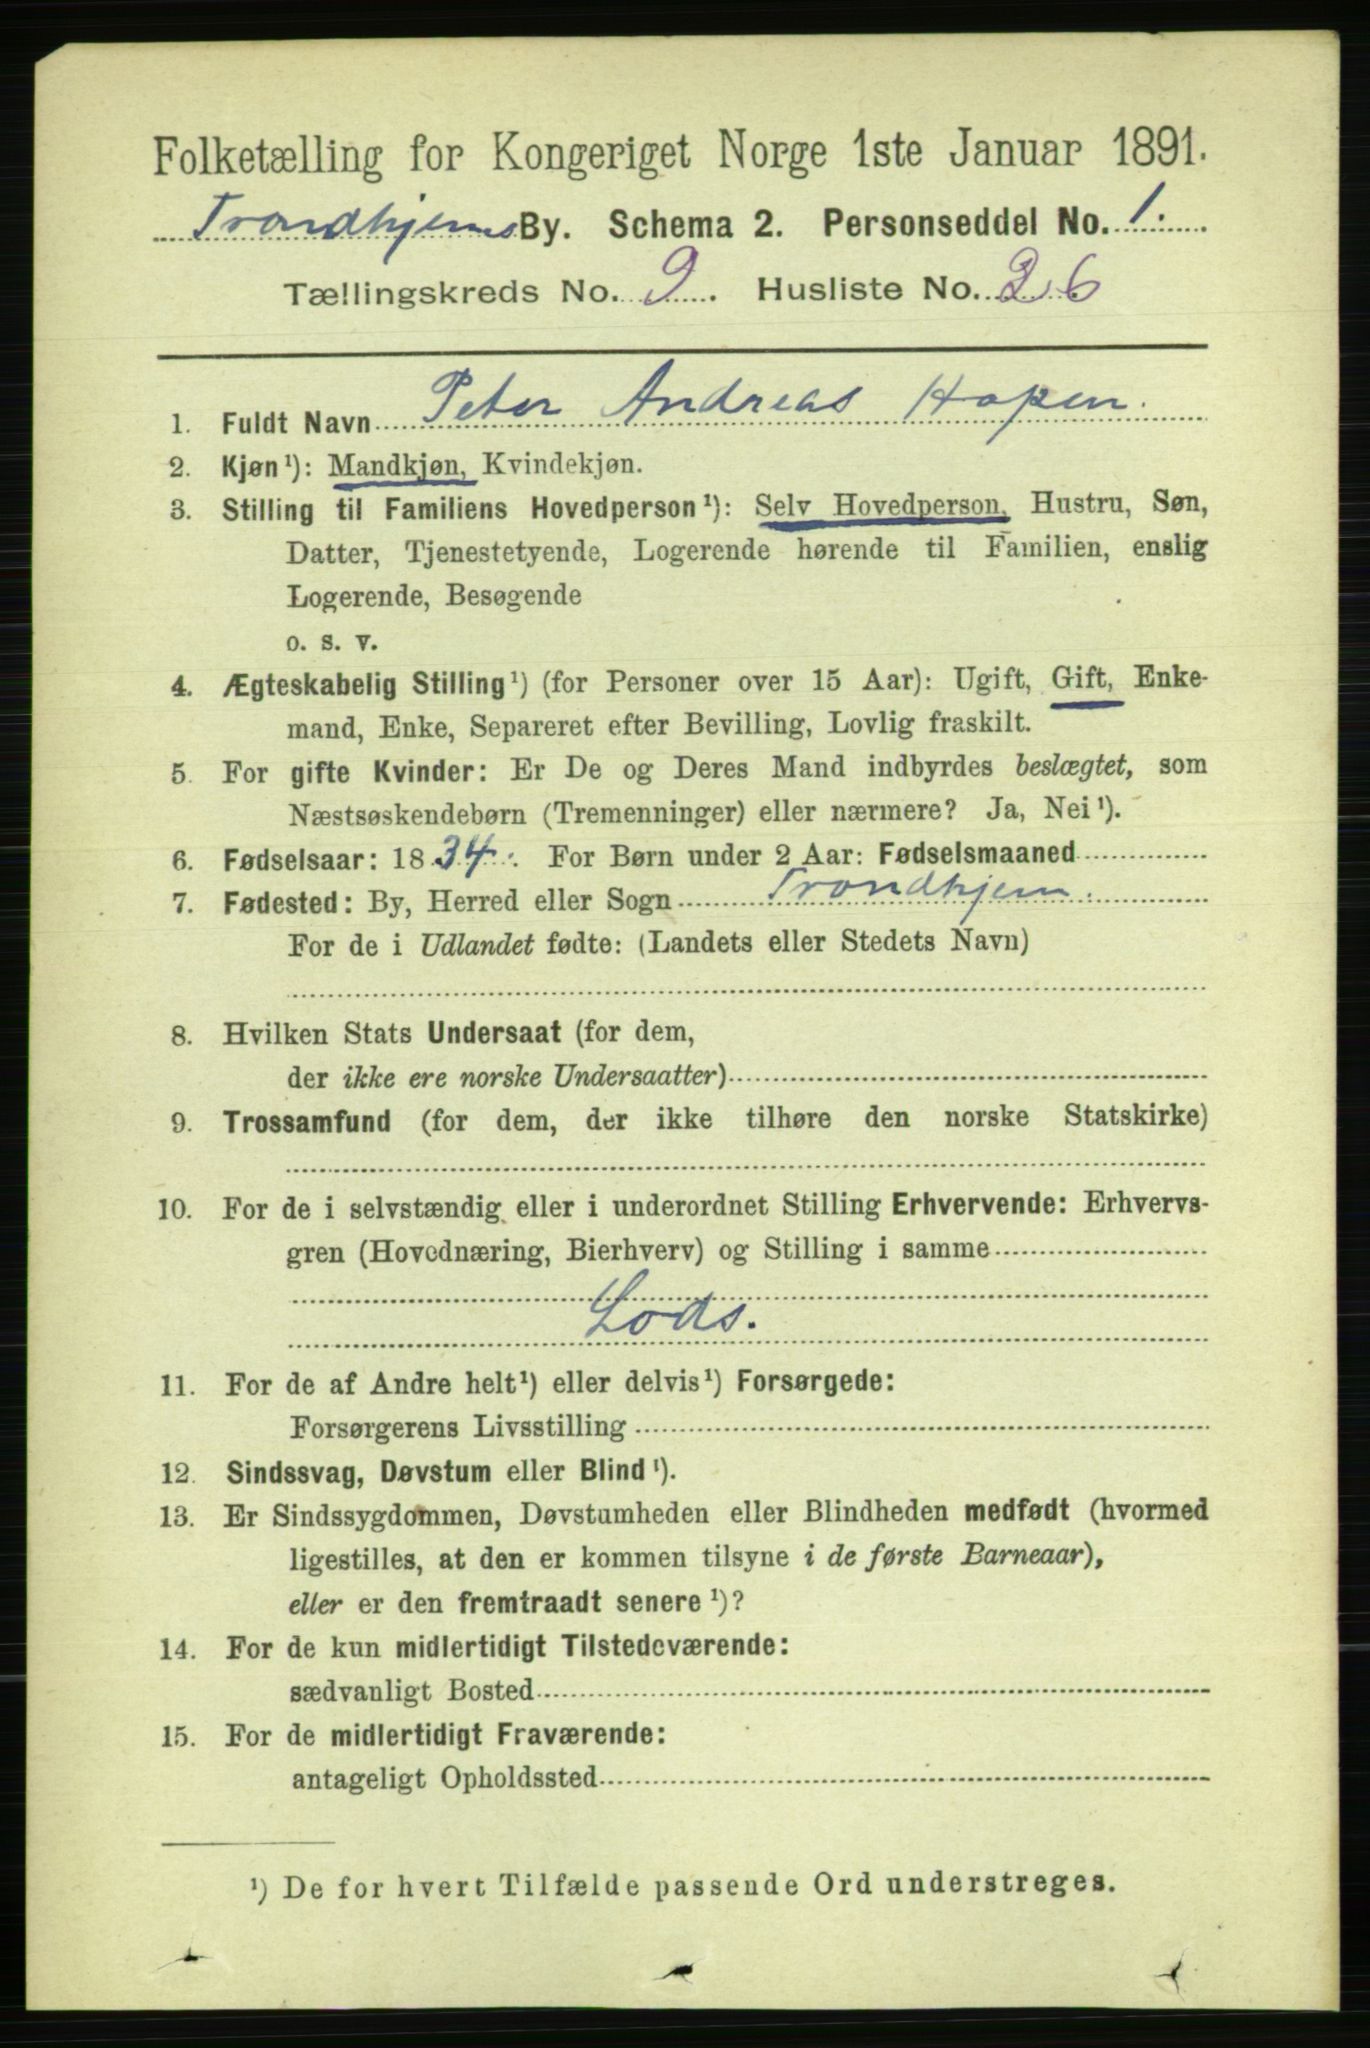 Folketælling for Kongeriget Norge 1ste Januar 1891.
Trondhjems By. Schema 2. Personseddel No. 1.
Tællingskreds No. 9. Husliste No. 26
1. Fuldt Navn Peter Andreas Hopen.
2. Kjøn¹): Mandkjøn, Kvindekjøn.
3. Stilling til Familiens Hovedperson¹): Selv Hovedperson, Hustru, Søn,
Datter, Tjenestetyende, Logerende hørende til Familien, enslig
Logerende, Besøgende
o. s. v.
4. Ægteskabelig Stilling¹) (for Personer over 15 Aar): Ugift, Gift, Enke-
mand, Enke, Separeret efter Bevilling, Lovlig fraskilt.
5. For gifte Kvinder: Er De og Deres Mand indbyrdes beslægtet, som
Næstsøskendebørn (Tremenninger) eller nærmere? Ja, Nei¹).
6. Fødselsaar: 1834. For Børn under 2 Aar: Fødselsmaaned
7. Fødested: By, Herred eller Sogn Trondhjem.
For de i Udlandet fødte: (Landets eller Stedets Navn)
8. Hvilken Stats Undersaat (for dem,
der ikke ere norske Undersaatter)
9. Trossamfund (for dem, der ikke tilhøre den norske Statskirke)
10. For de i selvstændig eller i underordnet Stilling Erhvervende: Erhvervs-
gren (Hovednæring, Bierhverv) og Stilling i samme
Lods.
11. For de af Andre helt¹) eller delvis¹) Forsørgede:
Forsørgerens Livsstilling
12. Sindssvag, Døvstum eller Blind¹).
13. Er Sindssygdommen, Døvstumheden eller Blindheden medfødt (hvormed
ligestilles, at den er kommen tilsyne i de første Barneaar),
eller er den fremtraadt senere¹)?
14. For de kun midlertidigt Tilstedeværende:
sædvanligt Bosted
15. For de midlertidigt Fraværende:
antageligt Opholdssted
¹) De for hvert Tilfælde passende Ord understreges.